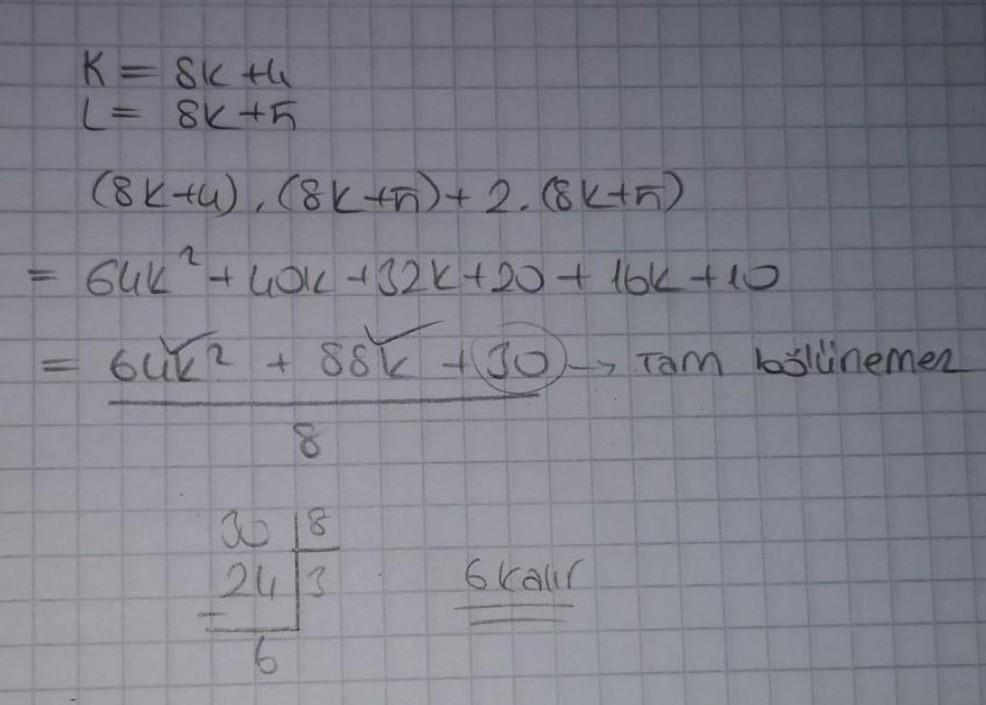 K = 8k+4
L = 8k+5
(8k+4).(8k+5)+2.(8k+5)
= 64k² + 40k + 32k + 20 + 16k + 10
= 64k² + 88k + 30 → Tam bölünemez
8
30 | 8
24 | 3
-
6
6 kalır